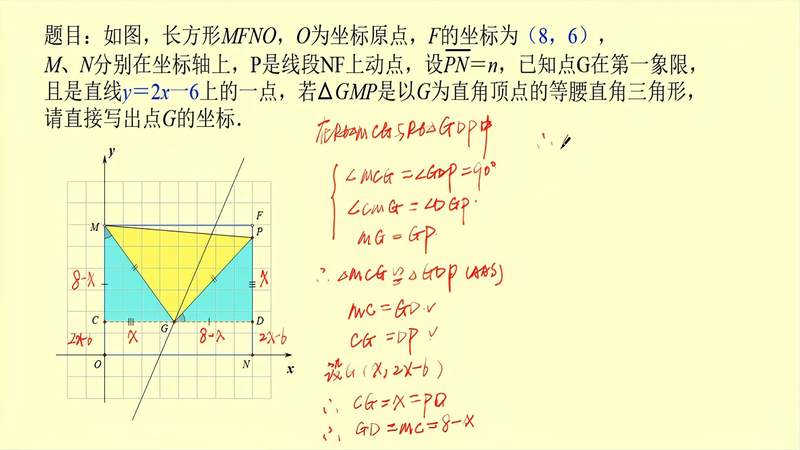 题目：如图，长方形MFNO，O为坐标原点，F的坐标为（8，6），
M、N分别在坐标轴上，P是线段NF上动点，设PN＝n，已知点G在第一象限，
且是直线y=2x一6上的一点，若ΔGMP是以G为直角顶点的等腰直角三角形，
请直接写出点G的坐标．
在Rt△MCG与Rt△GDP中
∠MCG=∠GDP=90°
∠CMG=∠DGP
MG=GP
∴△MCG≌△GDP(AAS)
MC=GD√
CG=DP√
设G(x,2x-6)
∴ CG=x=PD
∴ GD=MC=8-x
∴
y
M
F
P
8-x
x
C
G
D
2x-6
x
8-x
2x-6
O
N
x